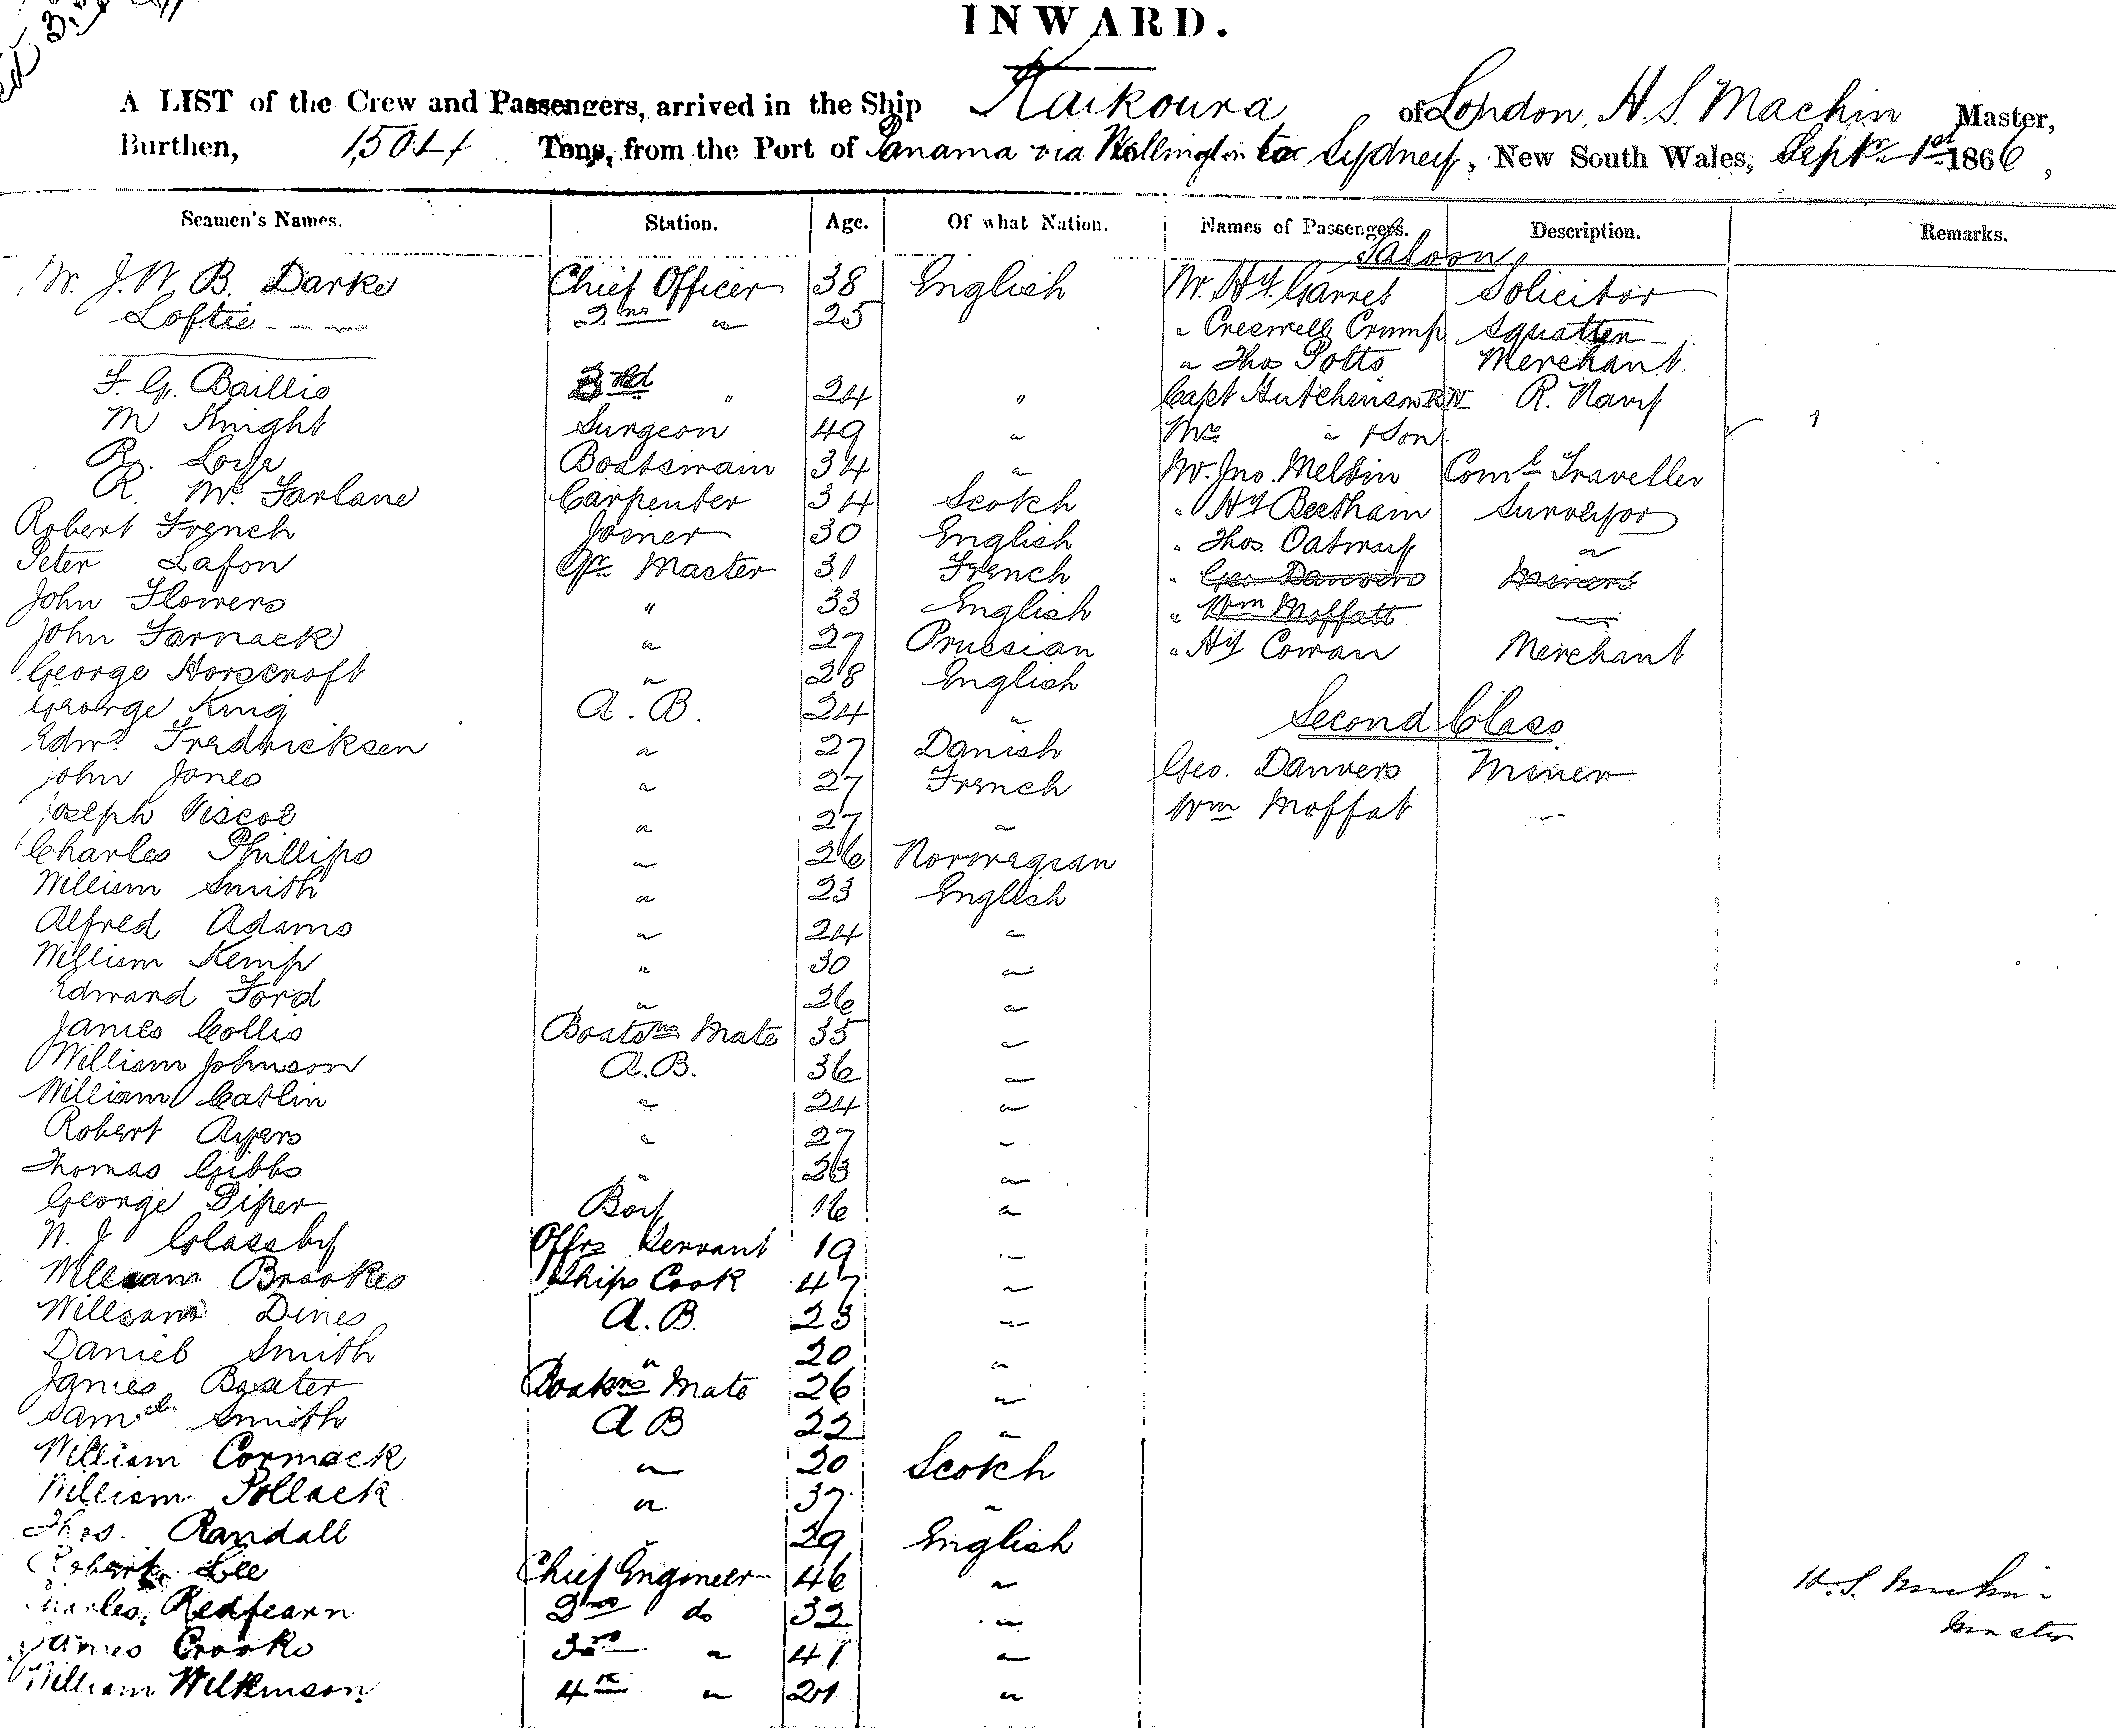 INWARD.
A LIST of the Crew and Passengers, arrived in the Ship Kaikoura of London, H. S. Machin Master,
Burthen, 1501 Tons, from the Port of Panama via Wellington to Sydney, New South Wales, Septr. 1st 1866,
Seamen's Names. Station. Age. Of what Nation. Names of Passengers. Description. Remarks.
Saloon
Mr. J. W. B. Darke Chief Officer 38 English Mr. Hy. Garret Solicitor
Loftie 2nd " 25 " Creswell Crump Squatter
" Thos Potts Merchant
F. G. Baillie 3rd " 24 " Capt Hutchinson RN R. Navy
M Knight Surgeon 49 " Mrs " & Son
R. Boatswain 34 " Mr. Jno. Melvin Coml. Traveller
R. Mc Farlane Carpenter 34 Scotch " Hy Beetham Surveyor
Robert French Joiner 30 English " Thos. Oatway "
Peter Lafon Qr. Master 31 French " Geo Danvers Miner
John Flowers " 33 English " Wm Moffatt "
John Farnack " 27 Prussian " Hy Cowan Merchant
George Horscroft " 28 English
George King A. B. 24 " Second Class
Edwd. Fredricksen " 27 Danish
John Jones " 27 French Geo. Danvers Miner
Joseph Viscol " 27 " Wm Moffat "
Charles Phillips " 26 Norwegian
William Smith " 23 English
Alfred Adams " 24 "
William Kemp " 30 "
Edward Ford " 26 "
James Collis Boatsns Mate 35 "
William Johnson A.B. 36 "
William Catlin " 24 "
Robert Ayers " 27 "
Thomas Gibbs " 23 "
George Piper Boy 16 "
W. J. Glassby Offrs Servant 19 "
William Brookes Ships Cook 47 "
William Dines A. B. 23 "
Daniel Smith " 20 "
James Baxter Boatsns Mate 26 "
Saml. Smith A B 22 "
William Cormack " 20 Scotch
William Pollack " 37 "
Thos. Randall " 29 English
Robert Lee Chief Engineer 46 "
Charles Redfearn 2nd do 32 "
James Crooks 3rd " 41 "
William Wilkinson 4th " 21 "
H. S. Machin
Master